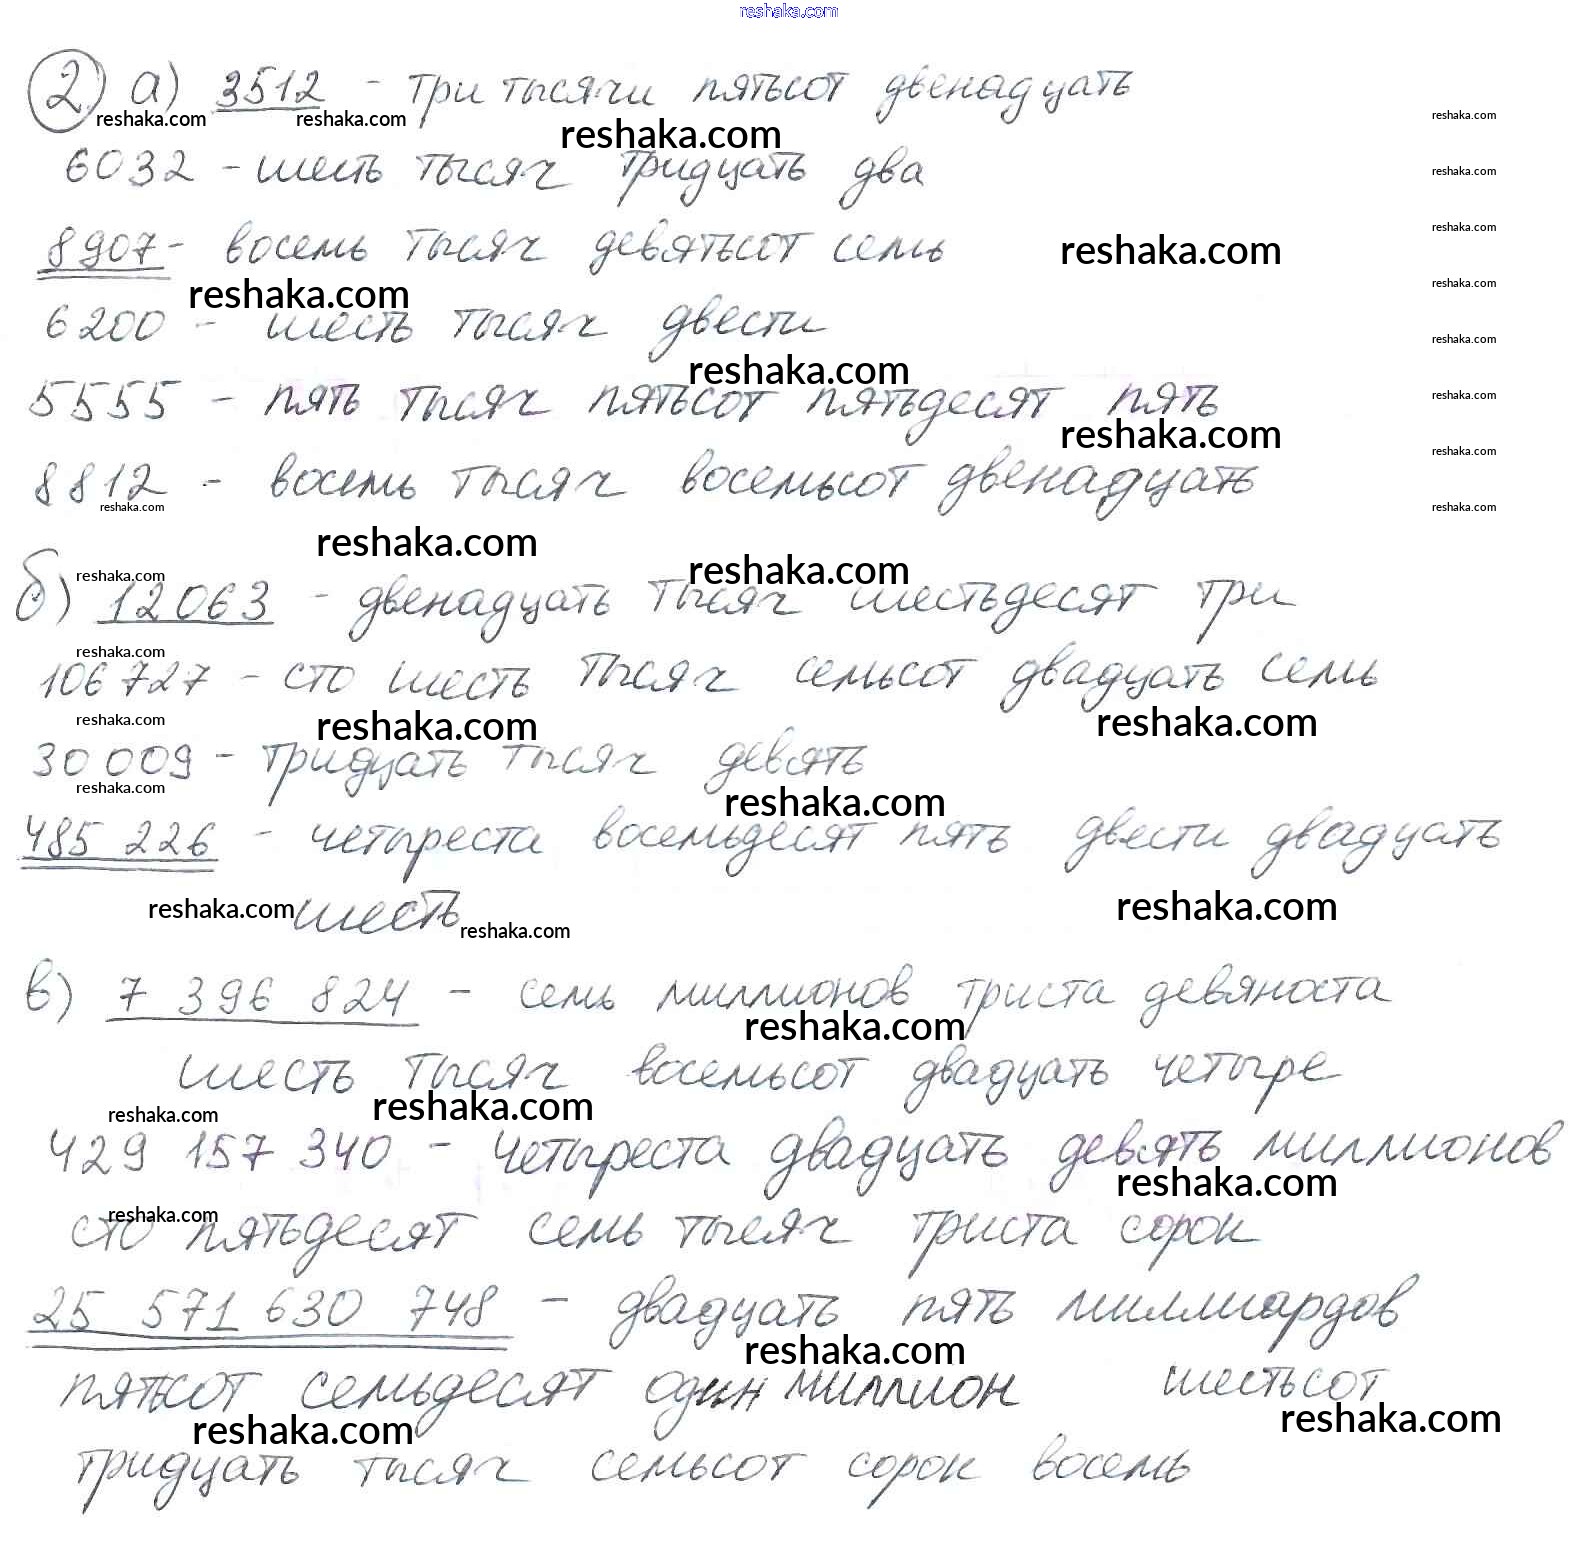 reshaka.com
2) а) 3512 - три тысячи пятьсот двенадцать
reshaka.com reshaka.com reshaka.com reshaka.com
6032 - шесть тысяч тридцать два
reshaka.com
8907 - восемь тысяч девятьсот семь
reshaka.com reshaka.com
reshaka.com reshaka.com
6200 - шесть тысяч двести
reshaka.com
reshaka.com
5555 - пять тысяч пятьсот пятьдесят пять
reshaka.com
reshaka.com reshaka.com
8812 - восемь тысяч восемьсот двенадцать
reshaka.com reshaka.com
reshaka.com
reshaka.com reshaka.com
б) 12063 - двенадцать тысяч шестьдесят три
reshaka.com
106 727 - сто шесть тысяч семьсот двадцать семь
reshaka.com reshaka.com reshaka.com
30 009 - тридцать тысяч девять
reshaka.com reshaka.com
485 226 - четыреста восемьдесят пять двести двадцать
reshaka.com шесть reshaka.com reshaka.com
в) 7 396 824 - семь миллионов триста девяноста
reshaka.com
шесть тысяч восемьсот двадцать четыре
reshaka.com reshaka.com
429 157 340 - четыреста двадцать девять миллионов
reshaka.com
reshaka.com
сто пятьдесят семь тысяч триста сорок
25 571 630 748 - двадцать пять миллиардов
reshaka.com
пятьсот семьдесят один миллион шестьсот
reshaka.com reshaka.com
тридцать тысяч семьсот сорок восемь